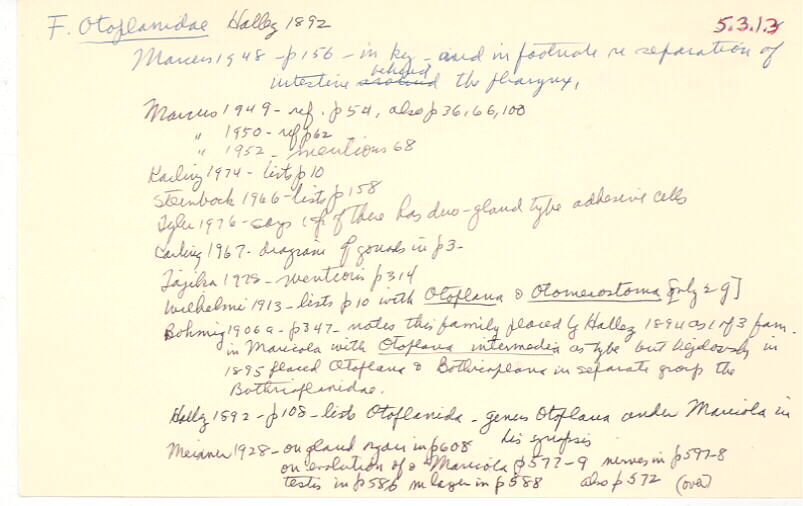 F. Otoplanidae Hallez 1892 5.3.1.3
Marcus 1948 - p156 - in key - and in footnote re separation of
intestine around behind the pharynx.
Marcus 1949 - ref. p54, also p36, 66, 100
" 1950 - ref p62
" 1952 - mentions 68
Karling 1974 - lists p10
Steinbock 1966 - lists p158
Tyler 1976 - says 1 sp of these has duo-gland type adhesive cells
Karling 1967 - diagrams of gonads in p3 -
Tajika 1978 - mentions p314
Wilhelmi 1913 - lists p10 with Otoplana & Otomesostoma [only 2 g]
Bohmig 1906a - p347 - notes this family placed by Hallez 1894 as 1 of 3 fam.
in Maricola with Otoplana intermedia as type but Vejdovsky in
1895 placed Otoplana & Bothrioplana in separate group the
Bothrioplanidae.
Hallez 1892 - p108 - lists Otoplanida - genus Otoplana under Maricola in
his synopsis
Meixner 1928 - on gland organ in p608
on evolution of Maricola p577-9 nerves in p597-8
testis in p586 m layer in p588 also p572 (over)